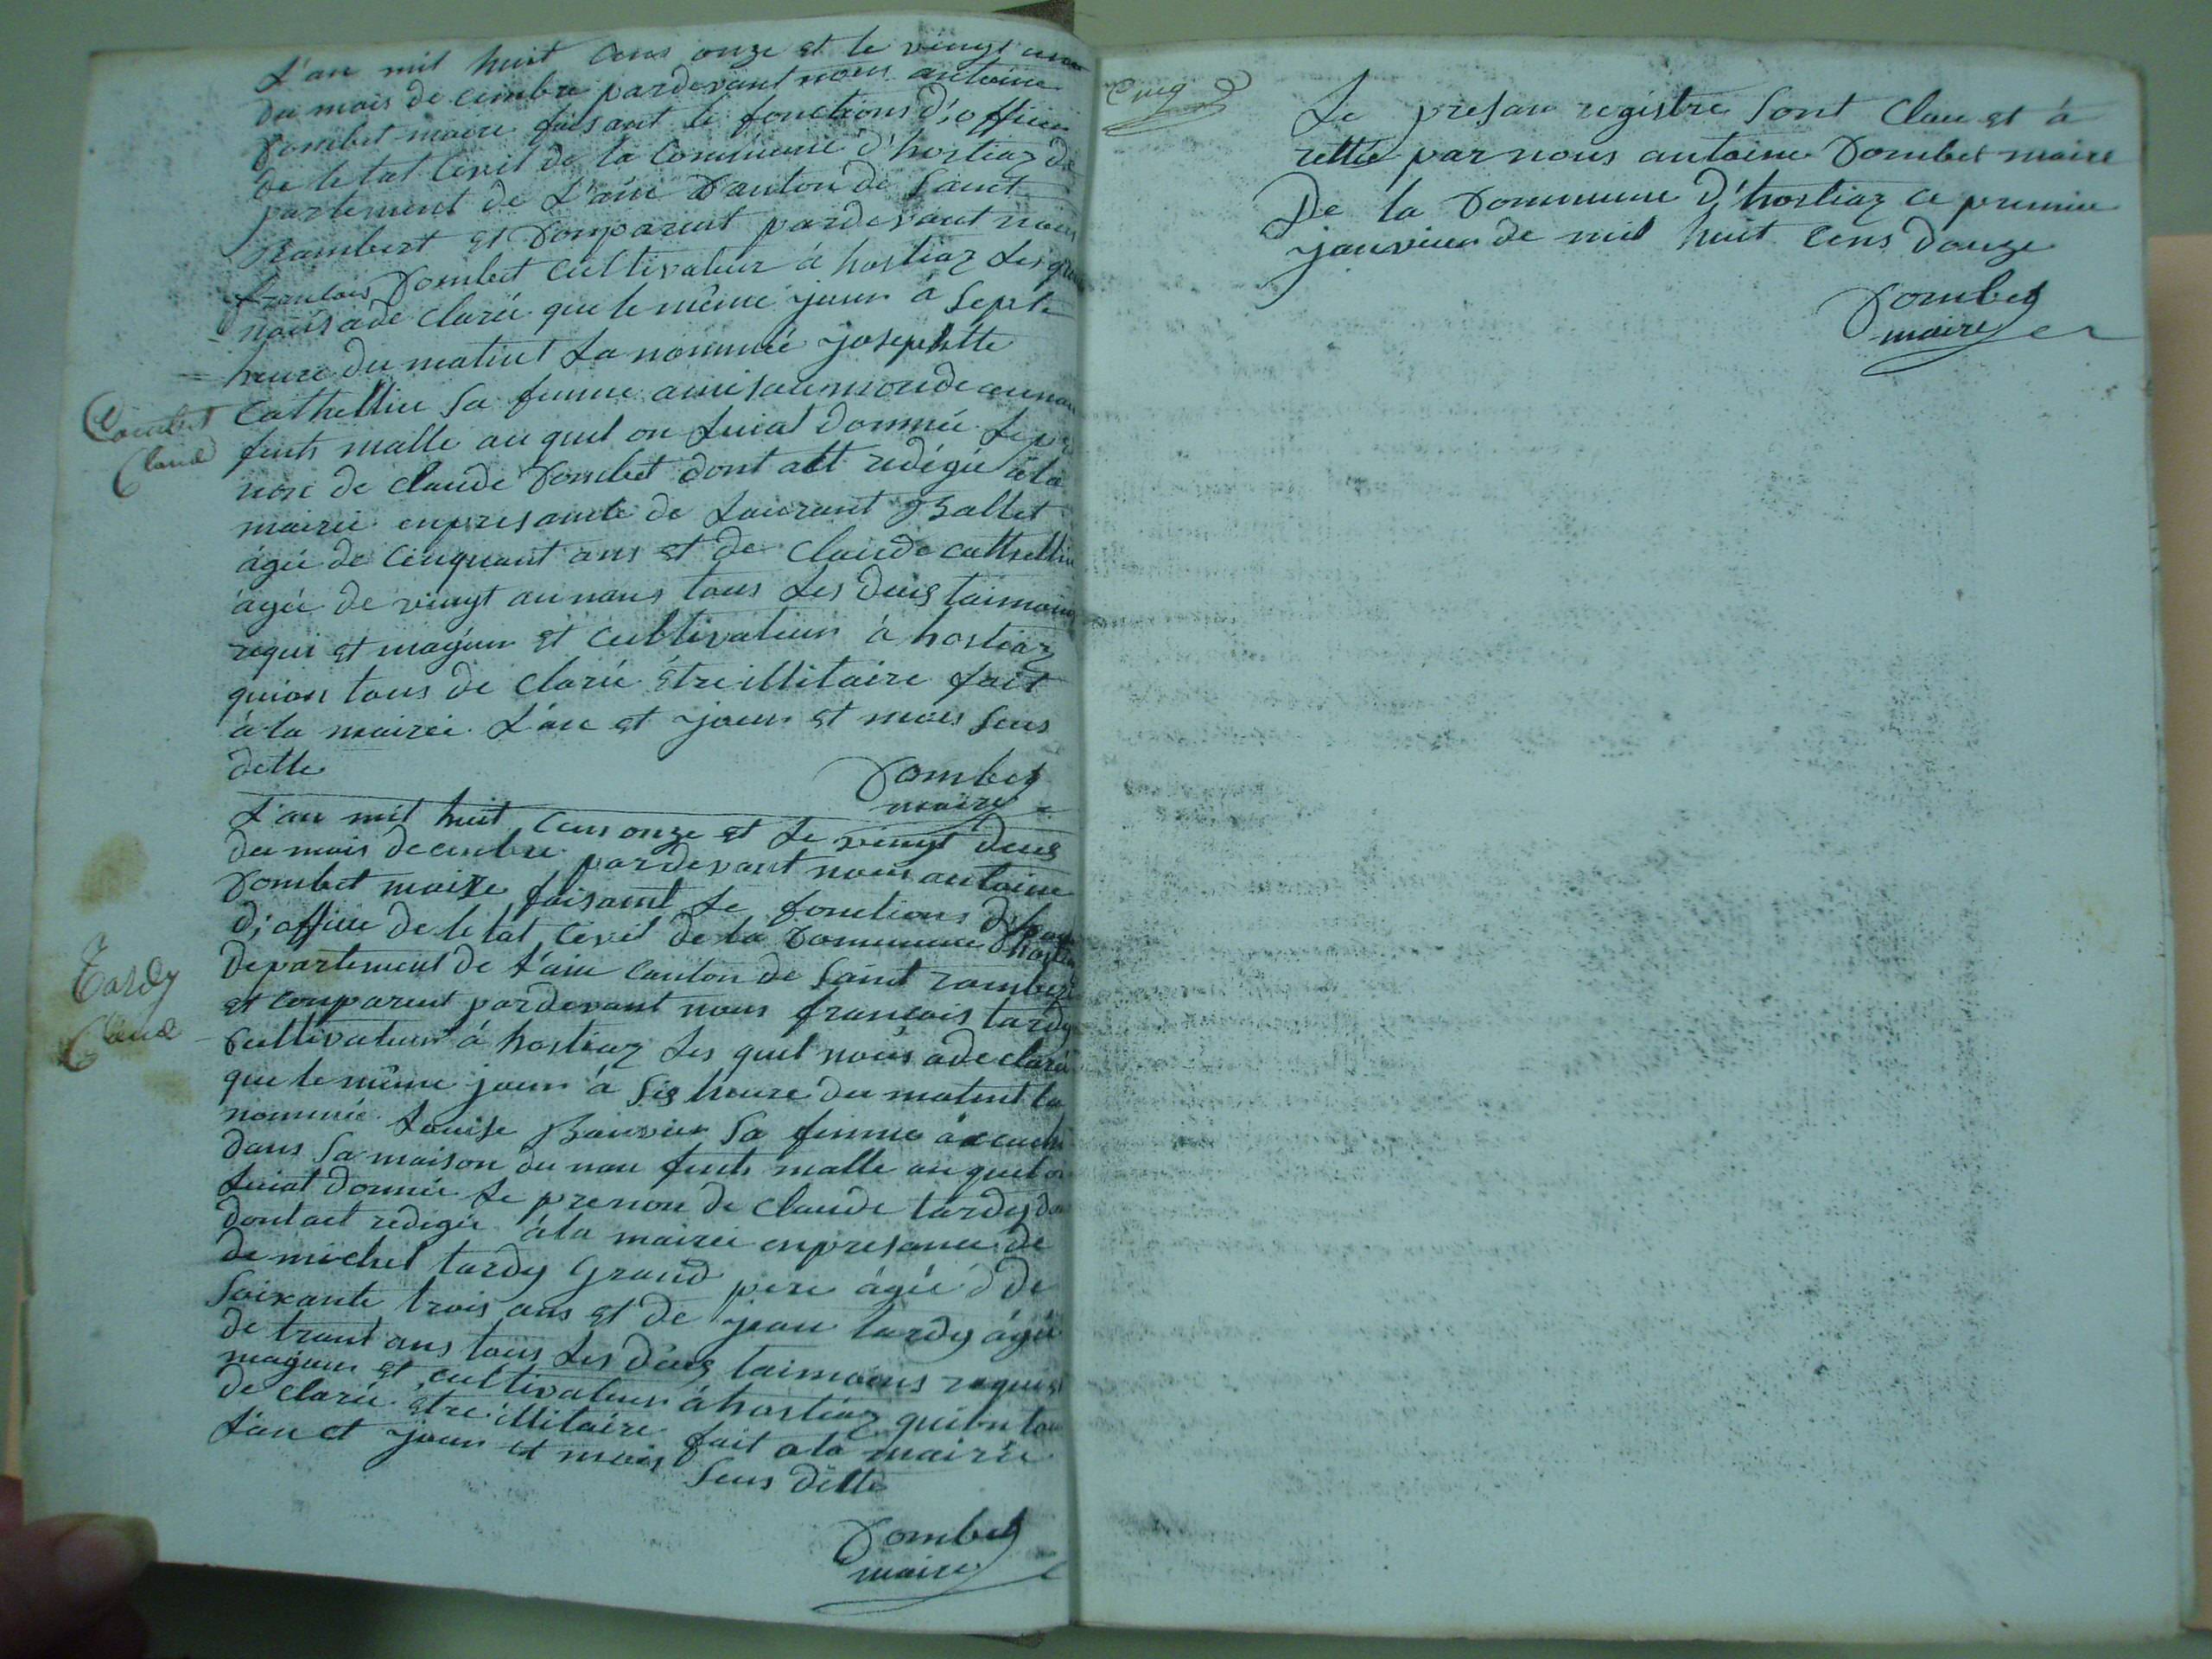 L'an mil huit cens onze et le vingt une
du mois de cembre pardevant nous antoine
Combet maire faisant le fonctions d'officie
de letat Civil de la Commune d'hostiaz de
partement de L'ain Canton de Saint
Rambert et Comparent pardevant nous
francois Combet Cultivateur à hostiaz Les quel
nous ade claréé que le même jour à Sept
heure du matint La nommée josephtte
Combet
Claud
Cathellin Sa femme amis au monde
fents malle au quel on Luiat donnée Le
non de claude Combet dont att redigée à la
mairie enpresante de Laurant Ballet
âgée de Cinquant ans et de Claude cathellin
âgée de vingt aunans tous Les deus taimoins
requi et majeur et Cultivateur à hostiaz
quion tous de Clarée être illitaire fait
à la mairie L'an et jour et mois Sus
ditte
Combet
maire
L'an mil huit Cens onze et Le vingt deus
du mois decembre pardevant nous antoine
Combet maire faisant Le fonctions
d'officie de letat Civil de la Commune d'hostiaz
Departement de L'ain Canton de Saint rambert
Tardy
Claud
et Comparent pardevant nous francois tardy
Cultivateur à hostiaz Les quel nous adeclaré
que le même jour à Sis heure du matint la
nommée Louise Bouvier Sa femme àccuché
dans Sa maison du nau fents malle au quel on
Luiat donnée Le prenon de Claude tardy
dontact redigée à la mairie enpresance de
de michel tardy Grand pere âgée de
Soixante trois ans et de jean tardy âgée
de trant ans tous Les deus taimoins requis
majeur et cultivateur à hostiaz quion tou
de clarée etre illitaire fait a la mairie
L'an et jour et mois Sus ditte
Combet
maire
Cinq
Le presan registre Sont Clau et à
rettée par nous antoine Combet maire
De la Commune d'hostiaz ce premier
janvier de mil huit Cens douze
Combet
maire